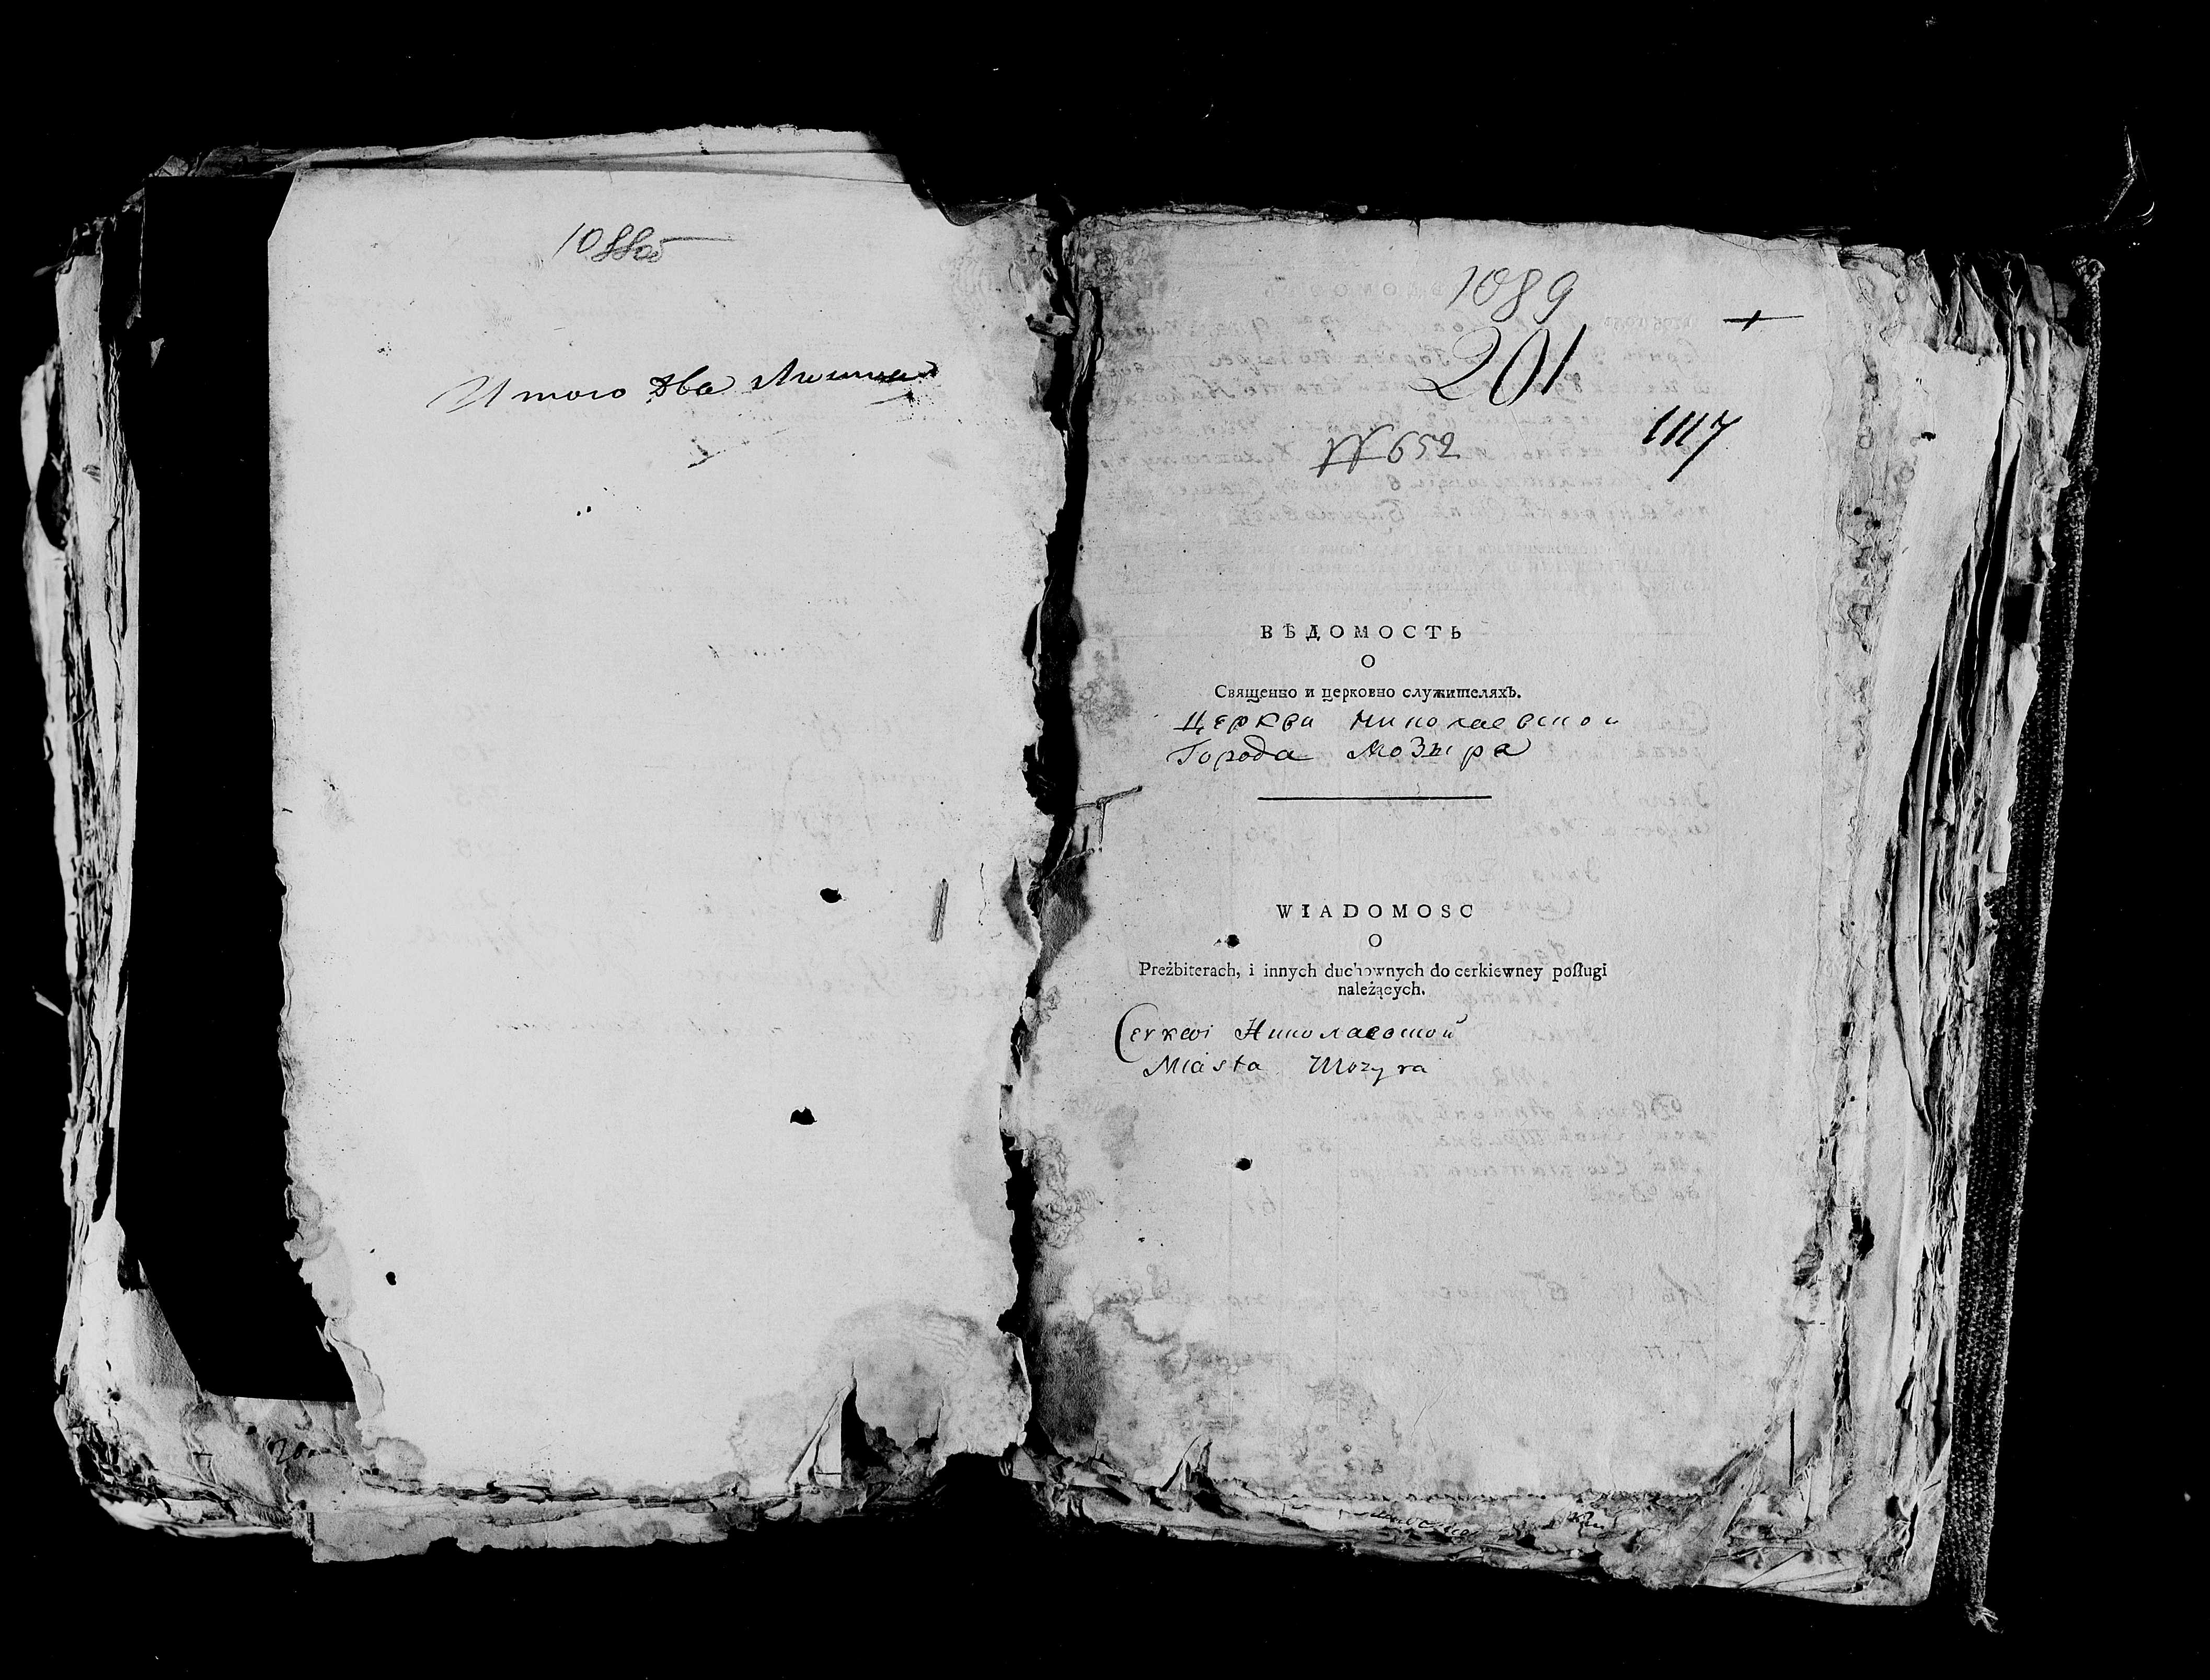 1088об
Итого два листа
1089
201
1117
№ 652
ВѢДОМОСТЬ
О
Священно и церковно служителяхъ.
Церкви Николаевской
Города Мозыра
WIADOMOSC
O
Preżbiterach, i innych duchownych do cerkiewney posługi
należących.
Cerkwi Николаевской
Miasta Mozyra